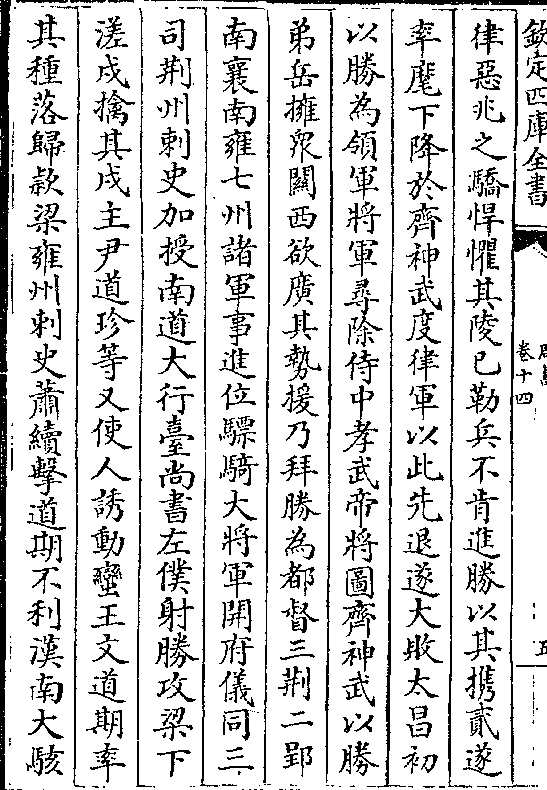 欽定四庫全書
卷十四
律惡兆之驕悍懼其陵已勒兵不肯進勝以其攜貳遂
率麾下降於齊神武度律軍以此先退遂大敗太昌初
以勝為領軍將軍尋除侍中孝武帝將圖齊神武以勝
弟岳擁衆闗西欲廣其勢援乃拜勝為都督三荆二郢
南襄南雍七州諸軍事進位驃騎大將軍開府儀同三
司荆州刺史加授南道大行臺尚書左僕射勝攻梁下
溠戍擒其戍主尹道珍等又使人誘動蠻王文道期率
其種落歸款梁雍州刺史蕭續擊道期不利漢南大駭